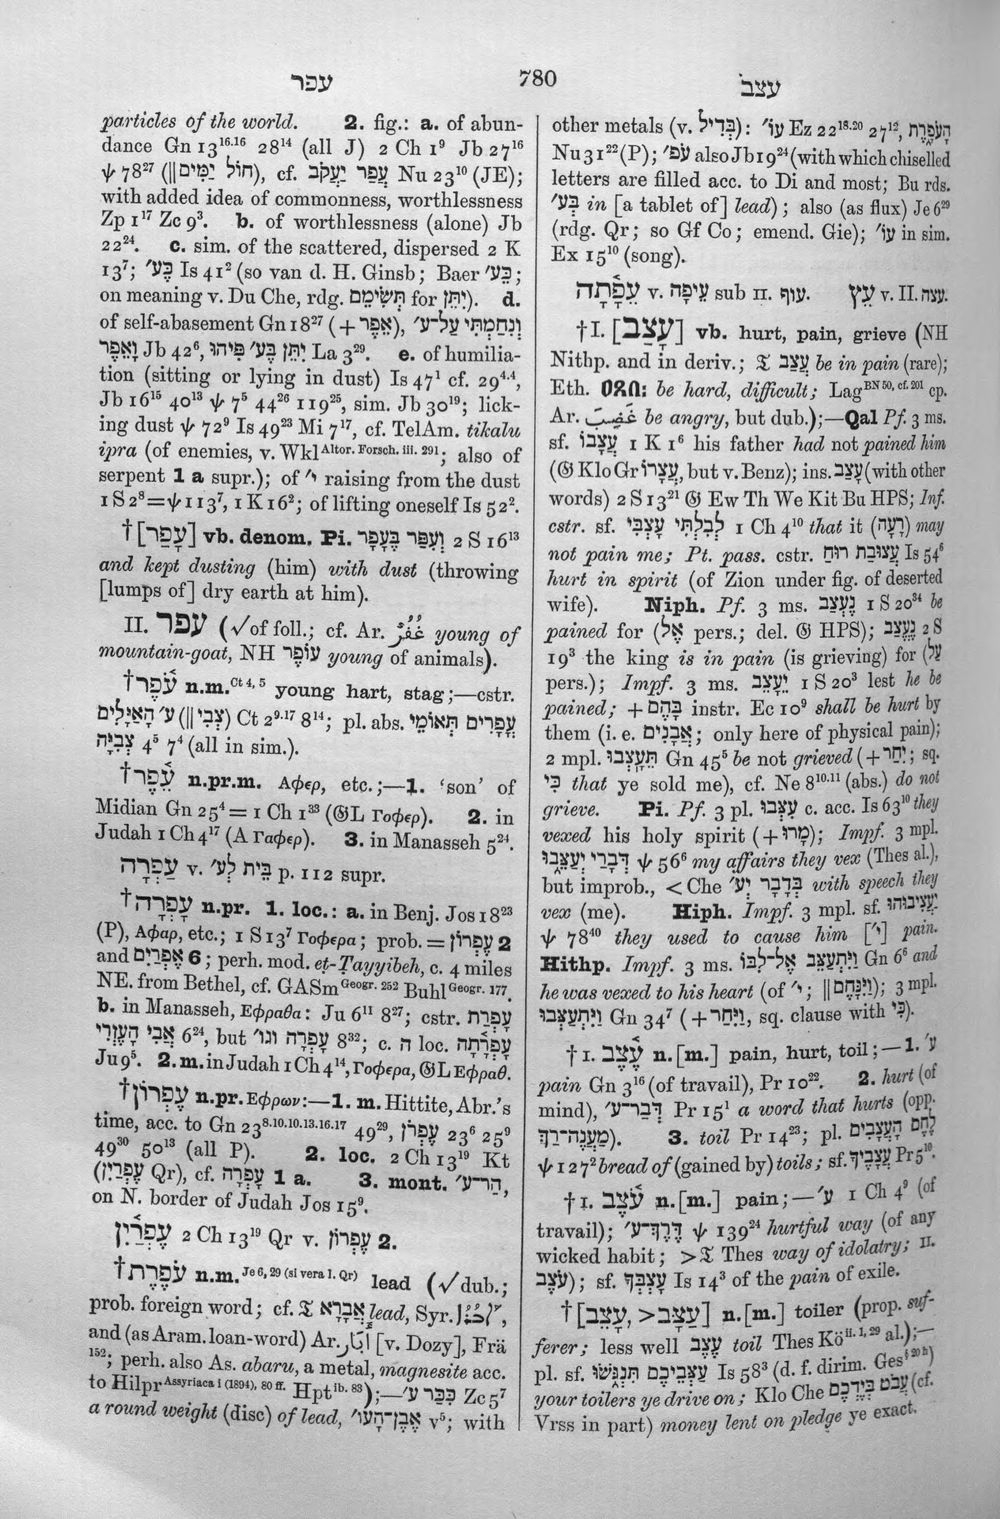 עפר
780
עצב
particles of the world. 2. fig.: a. of abun-
dance Gn 13¹⁶·¹⁶ 28¹⁴ (all J) 2 Ch 1⁹ Jb 27¹⁶
ψ 78²⁷ (|| חוֹל יַמִּים), cf. עֲפַר יַעֲקֹב Nu 23¹⁰ (JE);
with added idea of commonness, worthlessness
Zp 1¹⁷ Zc 9³. b. of worthlessness (alone) Jb
22²⁴. c. sim. of the scattered, dispersed 2 K
13⁷; כֶּעָ׳ Is 41² (so van d. H. Ginsb; Baer כַּעָ׳;
on meaning v. Du Che, rdg. תְּשִׂימֵם for יִתֵּן). d.
of self-abasement Gn 18²⁷ (+ אֵפֶר), וְנִחַמְתִּי עַל־ע׳
וָאֵפֶר Jb 42⁶, יִתֵּן בֶּעָ׳ פִּיהוּ La 3²⁹. e. of humilia-
tion (sitting or lying in dust) Is 47¹ cf. 29⁴·⁴,
Jb 16¹⁵ 40¹³ ψ 7⁵ 44²⁶ 119²⁵, sim. Jb 30¹⁹; lick-
ing dust ψ 72⁹ Is 49²³ Mi 7¹⁷, cf. TelAm. tikalu
ipra (of enemies, v. Wkl Altor. Forsch. iii. 291; also of
serpent 1 a supr.); of י׳ raising from the dust
1 S 2⁸ = ψ 113⁷, 1 K 16²; of lifting oneself Is 52².
† [עָפַר] vb. denom. Pi. וְעִפַּר בֶּעָפָר 2 S 16¹³
and kept dusting (him) with dust (throwing
[lumps of] dry earth at him).
II. עפר (√ of foll.; cf. Ar. غُفْرٌ young of
mountain-goat, NH עוֹפֶר young of animals).
† עֹ֫פֶר n.m. Ct 4, 5 young hart, stag;—cstr.
ע׳ הָאַיָּלִים (|| צְבִי) Ct 2⁹·¹⁷ 8¹⁴; pl. abs. עֳפָרִים תְּאוֹמֵי
צְבִיָּה 4⁵ 7⁴ (all in sim.).
† עֵ֫פֶר n.pr.m. Αφερ, etc.;—1. ‘son’ of
Midian Gn 25⁴ = 1 Ch 1³³ (𝔊L Γοφερ). 2. in
Judah 1 Ch 4¹⁷ (A Γαφερ). 3. in Manasseh 5²⁴.
עַפְרָה v. בֵּית לְעַ׳ p. 112 supr.
† עָפְרָה n.pr. 1. loc.: a. in Benj. Jos 18²³
(P), Αφαρ, etc.; 1 S 13⁷ Γοφερα; prob. = עֶפְרוֹן 2
and אֶפְרַיִם 6; perh. mod. et-Ṭayyibeh, c. 4 miles
NE. from Bethel, cf. GASm Geogr. 252 Buhl Geogr. 177.
b. in Manasseh, Εφραθα: Ju 6¹¹ 8²⁷; cstr. עָפְרַת
אֲבִי הָעֶזְרִי 6²⁴, but עָפְרָה וגו׳ 8³²; c. ה loc. עָפְרָ֫תָה
Ju 9⁵. 2. m. in Judah 1 Ch 4¹⁴, Γοφερα, 𝔊L Εφραθ.
† עֶפְרוֹן n.pr. Εφρων:—1. m. Hittite, Abr.’s
time, acc. to Gn 23⁸·¹⁰·¹⁰·¹³·¹⁶·¹⁷ 49²⁹, עֶפְרֹן 23⁶ 25⁹
49³⁰ 50¹³ (all P). 2. loc. 2 Ch 13¹⁹ Kt
(עֶפְרַיִן Qr), cf. עָפְרָה 1 a. 3. mont. הַר־ע׳,
on N. border of Judah Jos 15⁹.
עֶפְרַ֫יִן 2 Ch 13¹⁹ Qr v. עֶפְרוֹן 2.
† עֹפֶ֫רֶת n.m. Je 6, 29 (si vera l. Qr) lead (√ dub.;
prob. foreign word; cf. 𝔗 אֲבָרָא lead, Syr.
and (as Aram. loan-word) Ar. [v. Dozy], Frä
152; perh. also As. abaru, a metal, magnesite acc.
to Hilpr Assyriaca i (1894), 80 ff. Hpt ib. 83);—כִּכַּר ע׳ Zc 5⁷
a round weight (disc) of lead, אֶבֶן־הָעוֹ׳ v⁸; with
other metals (v. בְּדִיל): עוֹ׳ Ez 22¹⁸·²⁰ 27¹², הָעֹפָ֑רֶת
Nu 31²² (P); עֹפ׳ also Jb 19²⁴ (with which chiselled
letters are filled acc. to Di and most; Bu rds.
בָּע׳ in [a tablet of] lead); also (as flux) Je 6²⁹
(rdg. Qr; so Gf Co; emend. Gie); עוֹ׳ in sim.
Ex 15¹⁰ (song).
עֵפָ֫תָה v. עֵיפָה sub II. עוף. עֵץ v. II. עצה.
† I. [עָצַב] vb. hurt, pain, grieve (NH
Nithp. and in deriv.; 𝔗 עצב be in pain (rare);
Eth. be hard, difficult; Lag BN 50, cf. 201 cp.
Ar. غَضِبَ be angry, but dub.);—Qal Pf. 3 ms.
sf. עֲצָבוֹ 1 K 1⁶ his father had not pained him
(𝔊 Klo Gr עֲצָרוֹ, but v. Benz); ins. עצב (with other
words) 2 S 13²¹ 𝔊 Ew Th We Kit Bu HPS; Inf.
cstr. sf. לְבִלְתִּי עָצְבִּי 1 Ch 4¹⁰ that it (רָעָה) may
not pain me; Pt. pass. cstr. עֲצוּבַת רוּחַ Is 54⁶
hurt in spirit (of Zion under fig. of deserted
wife). Niph. Pf. 3 ms. נֶעְצַב 1 S 20³⁴ be
pained for (אֶל pers.; del. 𝔊 HPS); נֶעֱצַב 2 S
19³ the king is in pain (is grieving) for (עַל
pers.); Impf. 3 ms. יֵעָצֵב 1 S 20³ lest he be
pained; + בָּהֶם instr. Ec 10⁹ shall be hurt by
them (i. e. אֲבָנִים; only here of physical pain);
2 mpl. תֵּעָצְבוּ Gn 45⁵ be not grieved (+ יִחַר; sq.
כִּי that ye sold me), cf. Ne 8¹⁰·¹¹ (abs.) do not
grieve. Pi. Pf. 3 pl. עִצְּבוּ c. acc. Is 63¹⁰ they
vexed his holy spirit (+ מָרוּ); Impf. 3 mpl.
דְּבָרַי יְעַצֵּ֑בוּ ψ 56⁶ my affairs they vex (Thes al.),
but improb., < Che בְּדָבָר יְע׳ with speech they
vex (me). Hiph. Impf. 3 mpl. sf. יַעֲצִיבוּהוּ
ψ 78⁴⁰ they used to cause him [י׳] pain.
Hithp. Impf. 3 ms. וַיִּתְעַצֵּב אֶל־לִבּוֹ Gn 6⁶ and
he was vexed to his heart (of י׳; || וַיִּנָּחֶם); 3 mpl.
וַיִּתְעַצְּבוּ Gn 34⁷ (+ וַיִּחַר, sq. clause with כִּי).
† I. עֶ֫צֶב n.[m.] pain, hurt, toil;—1. ע׳
pain Gn 3¹⁶ (of travail), Pr 10²². 2. hurt (of
mind), דְּבַר־ע׳ Pr 15¹ a word that hurts (opp.
מַעֲנֶה־רַּךְ). 3. toil Pr 14²³; pl. לֶחֶם הָעֲצָבִים
ψ 127² bread of (gained by) toils; sf. עֲצָבֶיךָ Pr 5¹⁰.
† I. עֹ֫צֶב n.[m.] pain;—ע׳ 1 Ch 4⁹ (of
travail); דֶּרֶךְ־ע׳ ψ 139²⁴ hurtful way (of any
wicked habit; > 𝔗 Thes way of idolatry; II.
עֹצֶב); sf. עָצְבְּךָ Is 14³ of the pain of exile.
† [עַצֵּב, > עָצֵב] n.[m.] toiler (prop. suf-
ferer; less well עֶצֶב toil Thes Kö ii. 1, 29 al.);—
pl. sf. עַצְּבֵיכֶם תִּנְגֹּשׂוּ Is 58³ (d. f. dirim. Ges § 20 h)
your toilers ye drive on; Klo Che עֲבֹט בְּיֶדְכֶם (cf.
Vrss in part) money lent on pledge ye exact.